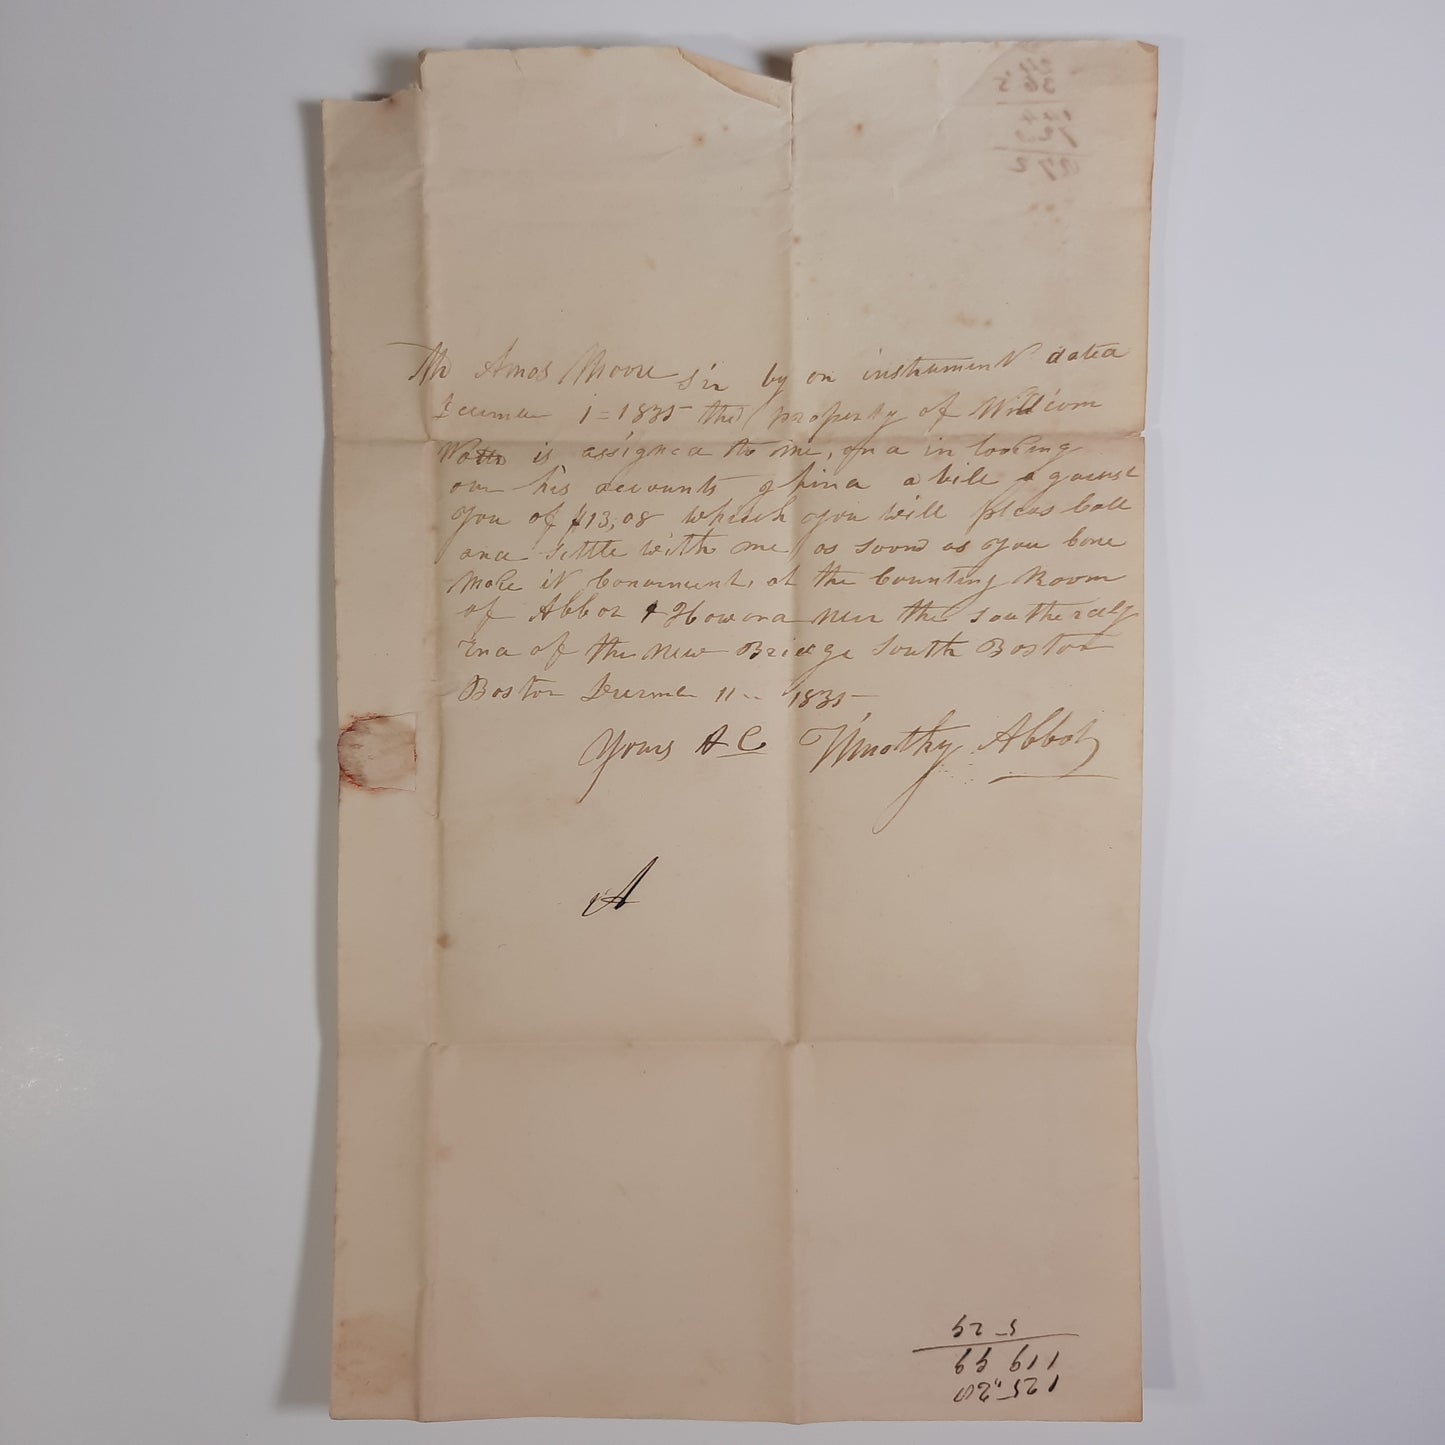 Mr Amos Moore Sir by an instrument dated
December 1 = 1835 the property of William
is assigned to me, and in looking
over his accounts I find a bill against
you of $13,08 which you will pleas call
and settle with me as soon as you cane
make it Convenient, at the Counting Room
of Abbot & Howard near the Southerly
End of the New Bridge South Boston
Boston December 11 .. 1835
Yours &C Timothy Abbot
A
125,20
119 99
5 29